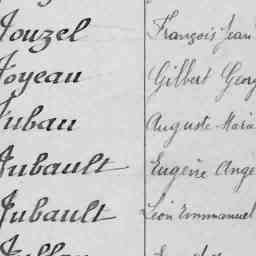 Jouzel François Jean
Joyeau Gilbert Georg
Juban Auguste Maria
Jubault Eugène Ange
Jubault Léon Emmanuel